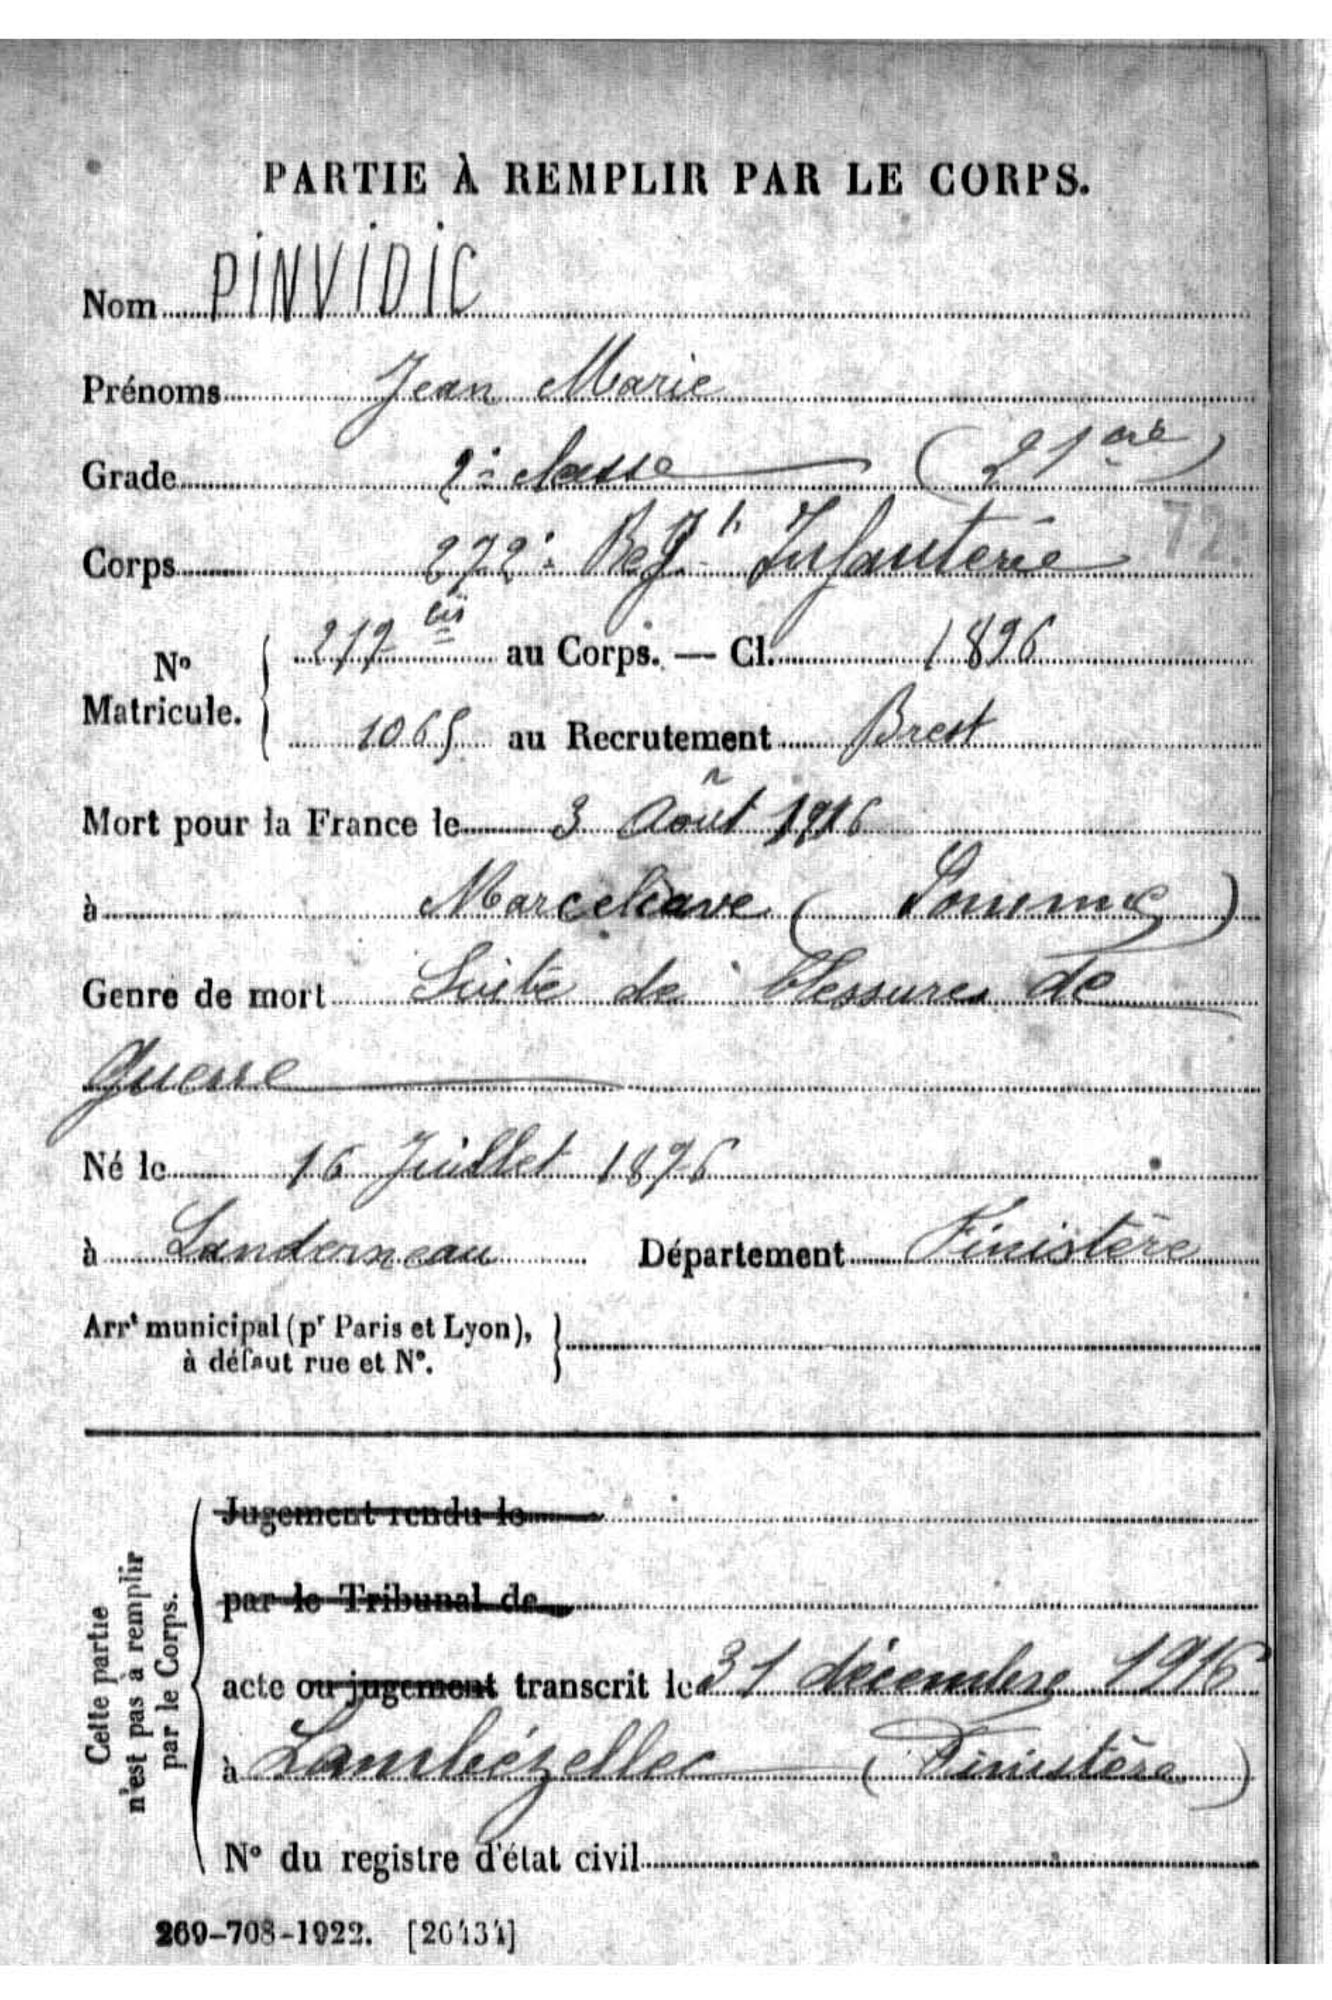 PARTIE À REMPLIR PAR LE CORPS.
Nom PINVIDIC
Prénoms Jean Marie
Grade 2e classe (21 cie)
Corps 272e Regt Infanterie 72.
No Matricule. 217 bis au Corps. — Cl. 1896
1065 au Recrutement Brest
Mort pour la France le 3 Août 1916
à Marcelcave (Somme)
Genre de mort Suite de blessures de
guerre
Né le 16 Juillet 1876
à Landerneau Département Finistère
Arrt municipal (pr Paris et Lyon),
à défaut rue et No.
Cette partie
n'est pas à remplir
par le Corps.
Jugement rendu le
par le Tribunal de
acte ou jugement transcrit le 31 décembre 1916
à Lambézellec (Finistère)
No du registre d'état civil
269-708-1922. [26434]